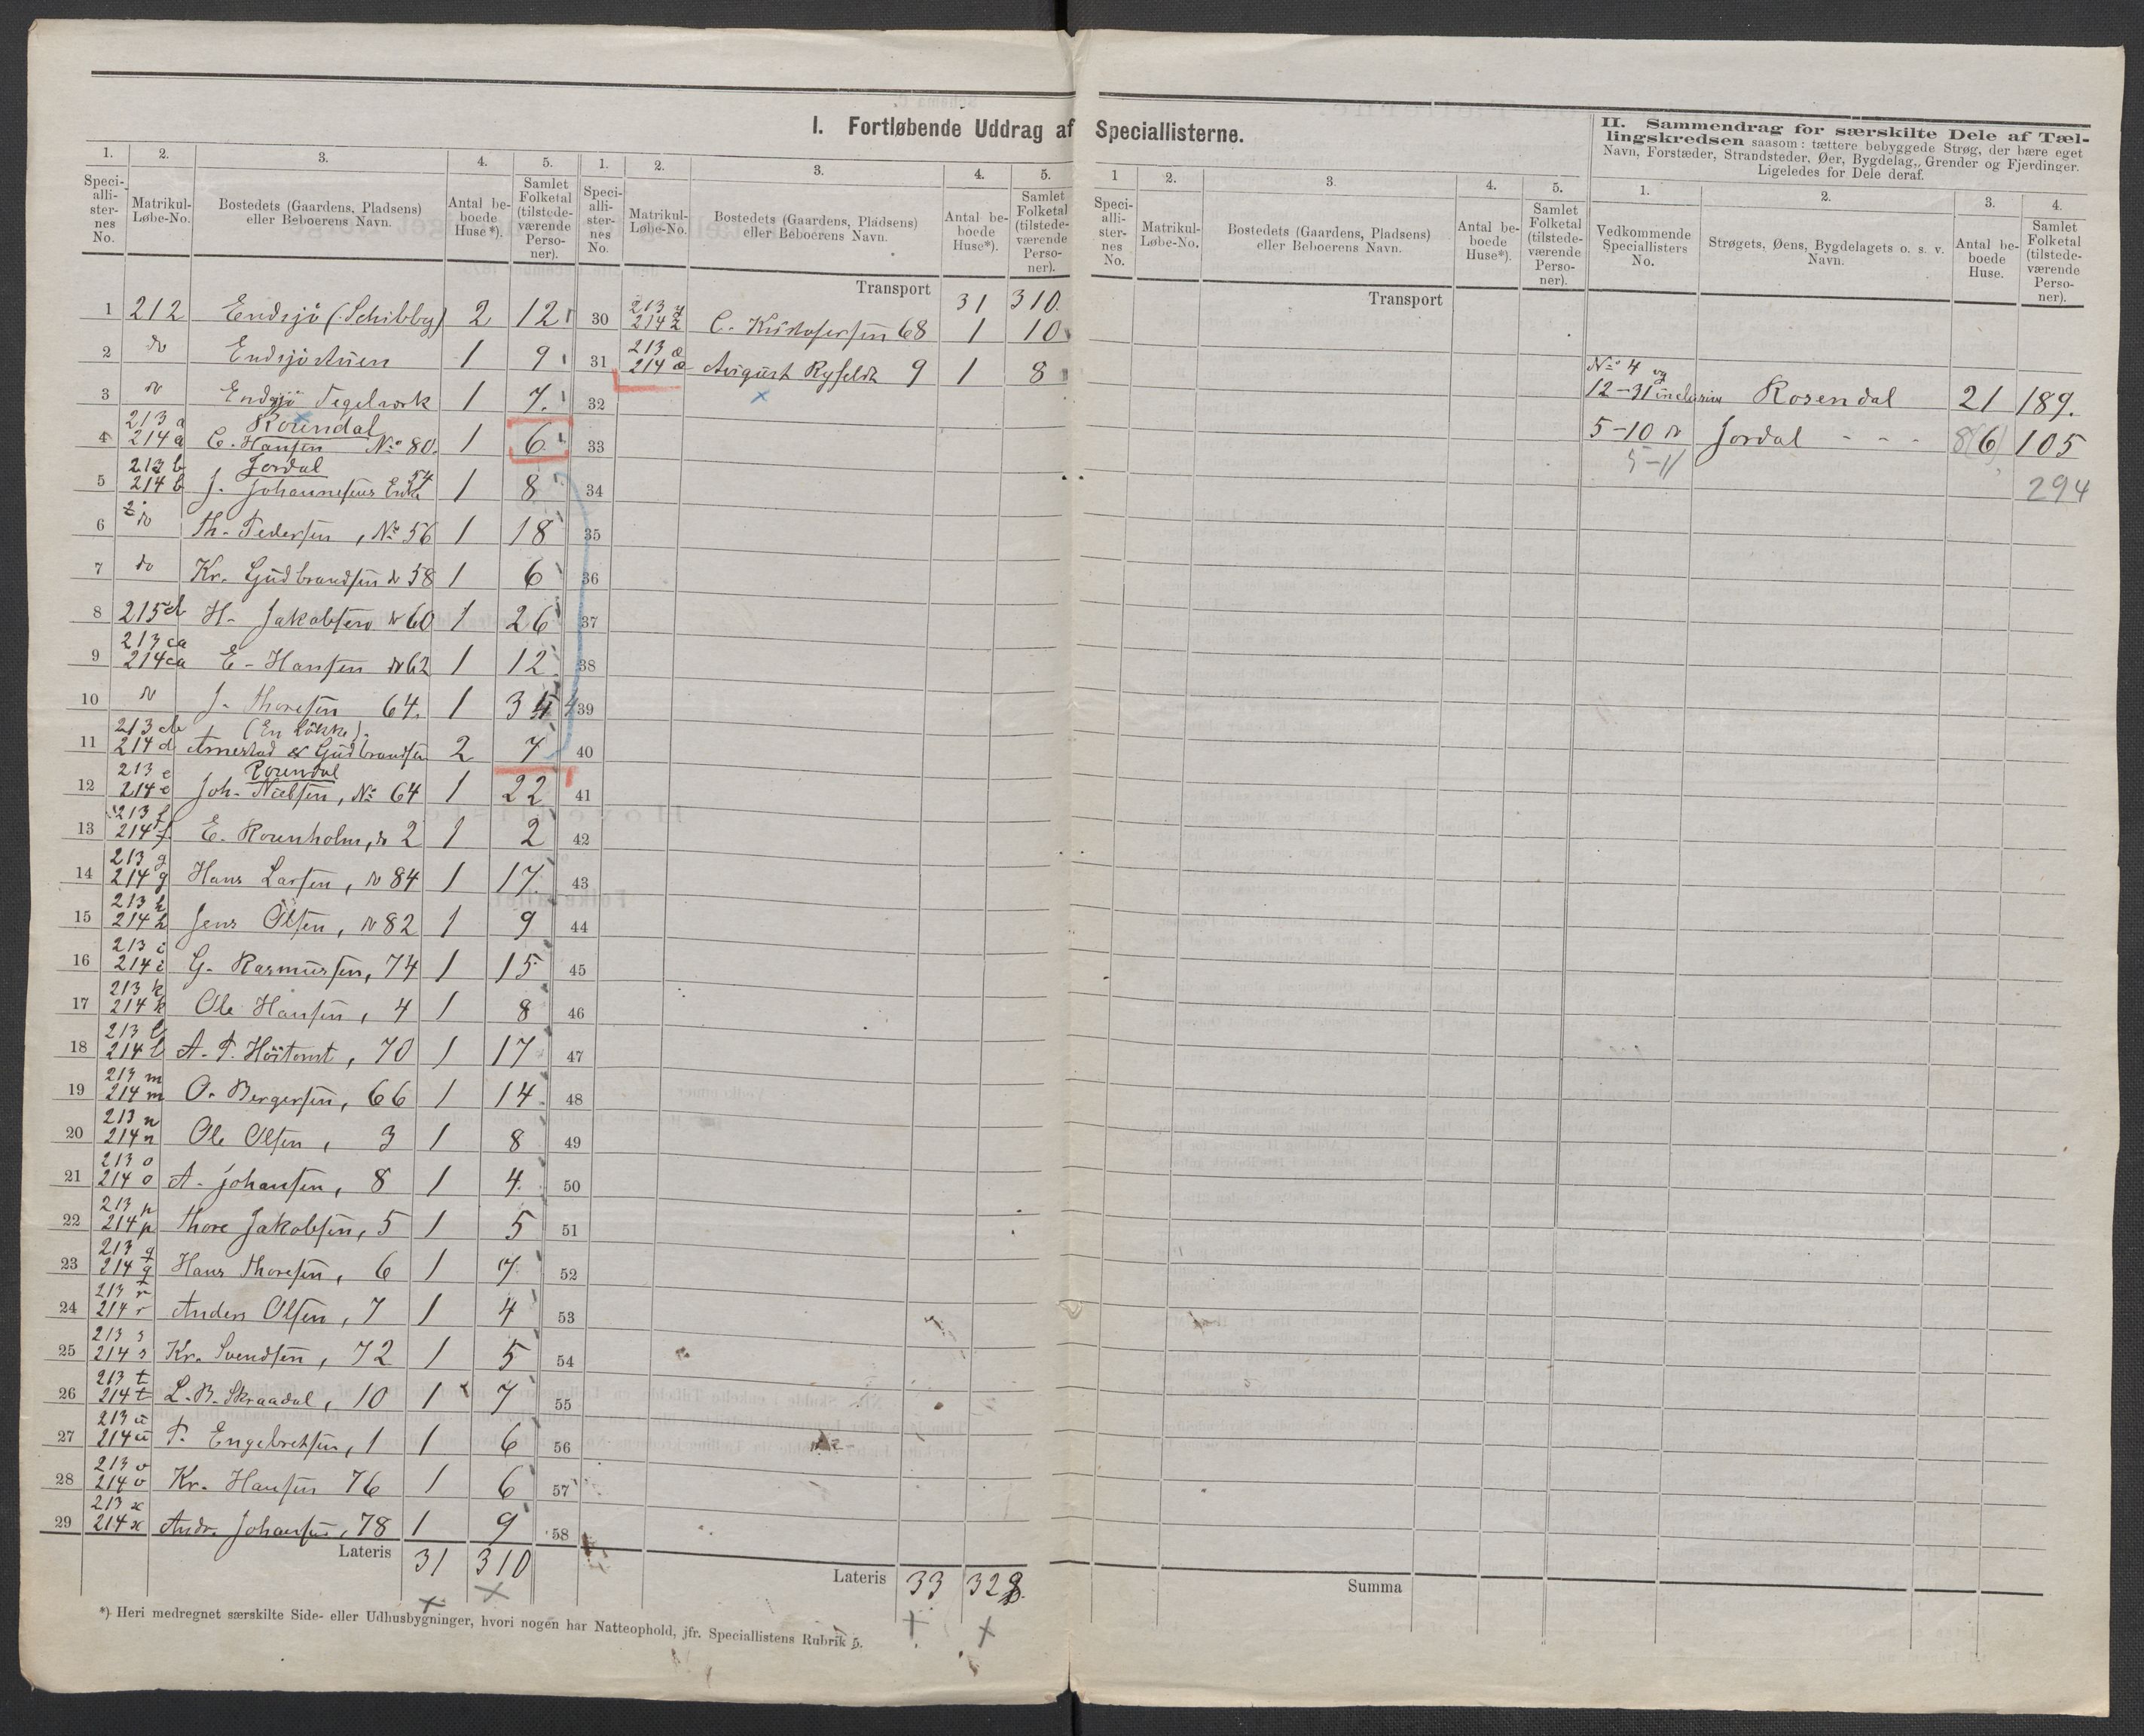 I. Fortløbende Uddrag af Speciallisterne.
1. 2. 3. 4. 5.
Speciallisternes No. Matrikul-Løbe-No. Bostedets (Gaardens, Pladsens) eller Beboerens Navn. Antal beboede Huse*). Samlet Folketal (tilstedeværende Personer).
1 212 Endsjö (Schibby) 2 12
2 do Endsjöstuen 1 9
3 do Endsjö Tegelværk 1 7.
Rosendal
4 213 a 214 a C. Hansen No 80. 1 6
Jordal
5 213 b 214 b J. Johannesens Enke 54 1 8
6 do Th. Pedersen, No 56 1 18
7 do Kr. Gudbrandsen do 58 1 6
8 215 d H. Jakobsen do 60 1 26
9 213 ca 214 ca E. Hansen do 62 1 12
10 do J. Thoresen 64. 1 34
(En Lökke).
11 213 d 214 d Arnestad & Gudbrandsen 2 7
Rosendal
12 213 e 214 e Joh. Nielsen, No 64 1 22
13 213 f 214 f E. Rosenholm, do 2 1 2
14 213 g 214 g Hans Larsen, do 84 1 17.
15 213 h 214 h Jens Olsen, do 82 1 9
16 213 i 214 i G. Rasmussen, 74 1 15
17 213 k 214 k Ole Hansen, 4 1 8
18 213 l 214 l A. P. Höitomt, 70 1 17
19 213 m 214 m O. Bergersen, 66 1 14
20 213 n 214 n Ole Olsen, 3 1 8
21 213 o 214 o A. Johansen, 8 1 4.
22 213 p 214 p Thore Jakobsen, 5 1 5
23 213 q 214 q Hans Thoresen, 6 1 7
24 213 r 214 r Anders Olsen, 7 1 4
25 213 s 214 s Kr. Svendsen, 72 1 5
26 213 t 214 t L. B. Skraadal, 10 1 7
27 213 u 214 u P. Engebretsen, 1 1 6
28 213 v 214 v Kr. Hansen 76 1 6
29 213 x 214 x Andr. Johansen, 78 1 9
Lateris 31 310
*) Heri medregnet særskilte Side- eller Udhusbygninger, hvori nogen har Natteophold, jfr. Speciallistens Rubrik 5.
1. 2. 3. 4. 5.
Speciallisternes No. Matrikul-Løbe-No. Bostedets (Gaardens, Pladsens) eller Beboerens Navn. Antal beboede Huse*). Samlet Folketal (tilstedeværende Personer).
Transport 31 310.
30 213 z 214 z C. Kristofersen 68 1 10
31 213 æ 214 æ August Ryfeldt 9 1 8
32
33
34
35
36
37
38
39
40
41
42
43
44
45
46
47
48
49
50
51
52
53
54
55
56
57
58
Lateris 33 328.
1 2. 3. 4. 5.
Speciallisternes No. Matrikul-Løbe-No. Bostedets (Gaardens, Pladsens) eller Beboerens Navn. Antal beboede Huse*). Samlet Folketal (tilstedeværende Personer).
Transport
Summa
II. Sammendrag for særskilte Dele af Tæl-
lingskredsen saasom: tættere bebyggede Strøg, der bære eget
Navn, Forstæder, Strandsteder, Øer, Bygdelag, Grender og Fjerdinger.
Ligeledes for Dele deraf.
1. 2. 3. 4.
Vedkommende Speciallisters No. Strøgets, Øens, Bygdelagets o. s. v. Navn. Antal beboede Huse. Samlet Folketal (tilstedeværende Personer).
No 4 og
12-31 inclusive Rosendal 21 189.
5-10 do Jordal - - - 8(6) 105
5-11 294